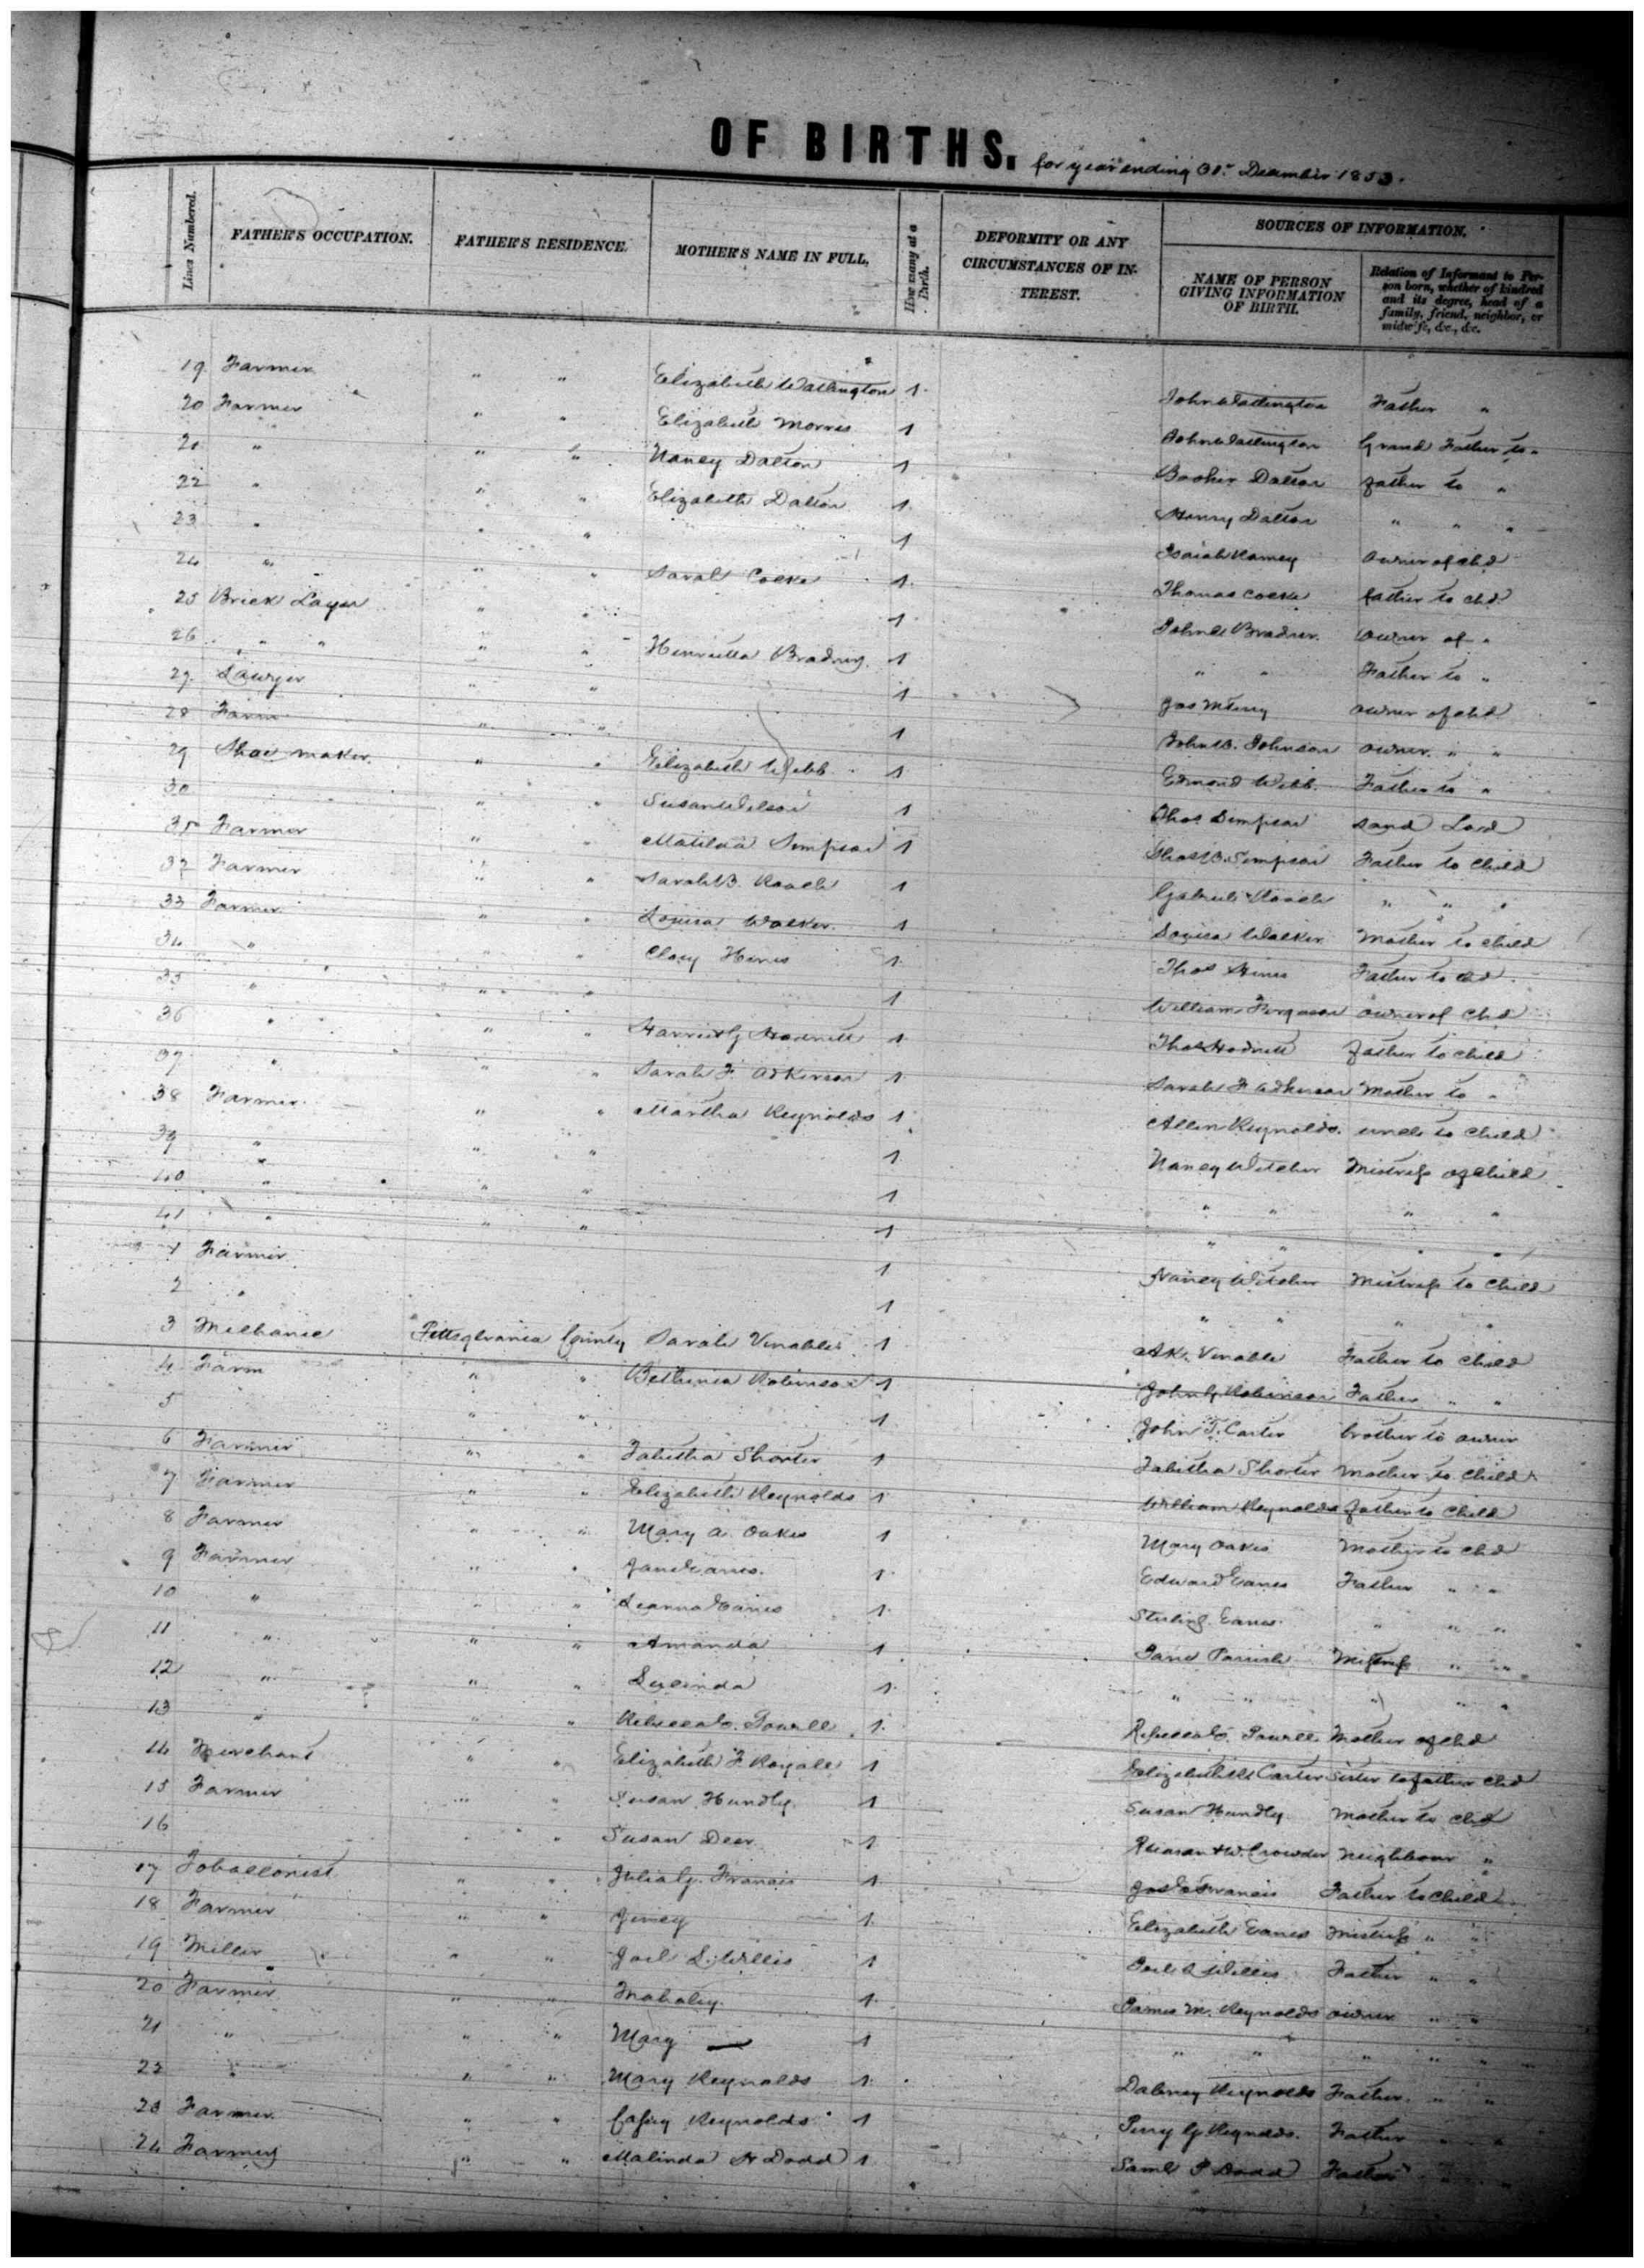 OF BIRTHS. for year ending 31st December 1853.
Lines Numbered. FATHER'S OCCUPATION. FATHER'S RESIDENCE. MOTHER'S NAME IN FULL. How many at a Birth. DEFORMITY OR ANY CIRCUMSTANCES OF INTEREST. SOURCES OF INFORMATION.
NAME OF PERSON GIVING INFORMATION OF BIRTH. Relation of Informant to Person born, whether of kindred and its degree, head of a family, friend, neighbor, or midwife, &c., &c.
19 Farmer " " Elizabeth Watlington 1 John Watlington Father "
20 Farmer " " Elizabeth Morris 1 John Watlington Grand Father to "
21 " " " Nancy Dalton 1 Booker Dalton father to "
22 " " " Elizabeth Dalton 1 Henry Dalton " " "
23 " " " 1 Isaiah Ramey owner of chd
24 " " " Sarah Cocke 1 Thomas Cocke father to chd
25 Brick Layer " " 1 John Bradner owner of "
26 " " " " Henrietta Bradney 1 " " Father to "
27 Lawyer " " 1 Jas M Terry owner of chd
28 Farm " " 1 John B. Johnson owner " "
29 Shoe maker " " Elizabeth Webb 1 Edmond Webb Father to "
30 " " Susan Wilson 1 Thos Simpson Land Lord
31 Farmer " " Matilda Simpson 1 Thos B. Simpson Father to child
32 Farmer " " Sarah B. Roach 1 Gabriel Roach " " "
33 Farmer " " Louisa Walker 1 Louisa Walker Mother to child
34 " " Clary Hines 1 Thos Hines Father to chd
35 " " " 1 William Ferguson owner of chd
36 " " " Harriet G Hodnett 1 Thos Hodnett father to child
37 " " " Sarah F. Adkerson 1 Sarah F Adkerson Mother to "
38 Farmer " " Martha Reynolds 1 Allen Reynolds uncle to child
39 " " " 1 Nancy Witcher Mistress of child
40 " " " 1 " " " "
41 " " " 1 " " " "
1 Farmer 1 Nancy Witcher Mistress to child
2 " 1 " " " "
3 Mechanic Pittsylvania County Sarah Venable 1 A K. Venable Father to child
4 Farm " " Bethenia Robinson 1 John G. Robinson Father " "
5 " " 1 John T. Carter brother to owner
6 Farmer " " Tabitha Shorter 1 Tabitha Shorter Mother to child
7 Farmer " " Elizabeth Reynolds 1 William Reynolds father to child
8 Farmer " " Mary A. Oakes 1 Mary Oakes Mother to chd
9 Farmer " " Jane Eanes 1 Edward Eanes Father " "
10 " " " Leanna Eanes 1 Sterling Eanes " " "
11 " " " Amanda 1 Jane Parrish Mistress " "
12 " " " Lucinda 1 " " " " "
13 " " " Rebecca C. Powell 1 Rebecca C. Powell Mother of chd
14 Merchant " " Elizabeth F. Royall 1 Elizabeth Carter Sister to father chd
15 Farmer " " Susan Hundly 1 Susan Hundly Mother to chd
16 " " Susan Deer 1 W. Crowder Neighbour "
17 Tobacconist " " Julia G. Francis 1 Francis Father to child
18 Farmer " " Jincy 1 Elizabeth Eanes Mistress " "
19 Miller " " Joel S. Willis 1 Joel S Willis Father " "
20 Farmer " " Mahaley 1 James M. Reynolds owner " "
21 " " " Mary 1 " " " " "
22 " " " Mary Reynolds 1 Dabney Reynolds Father " "
23 Farmer " " Reynolds 1 Perry G Reynolds Father " "
24 Farmer " " Malinda H Dodd 1 Saml P Dodd Father " "